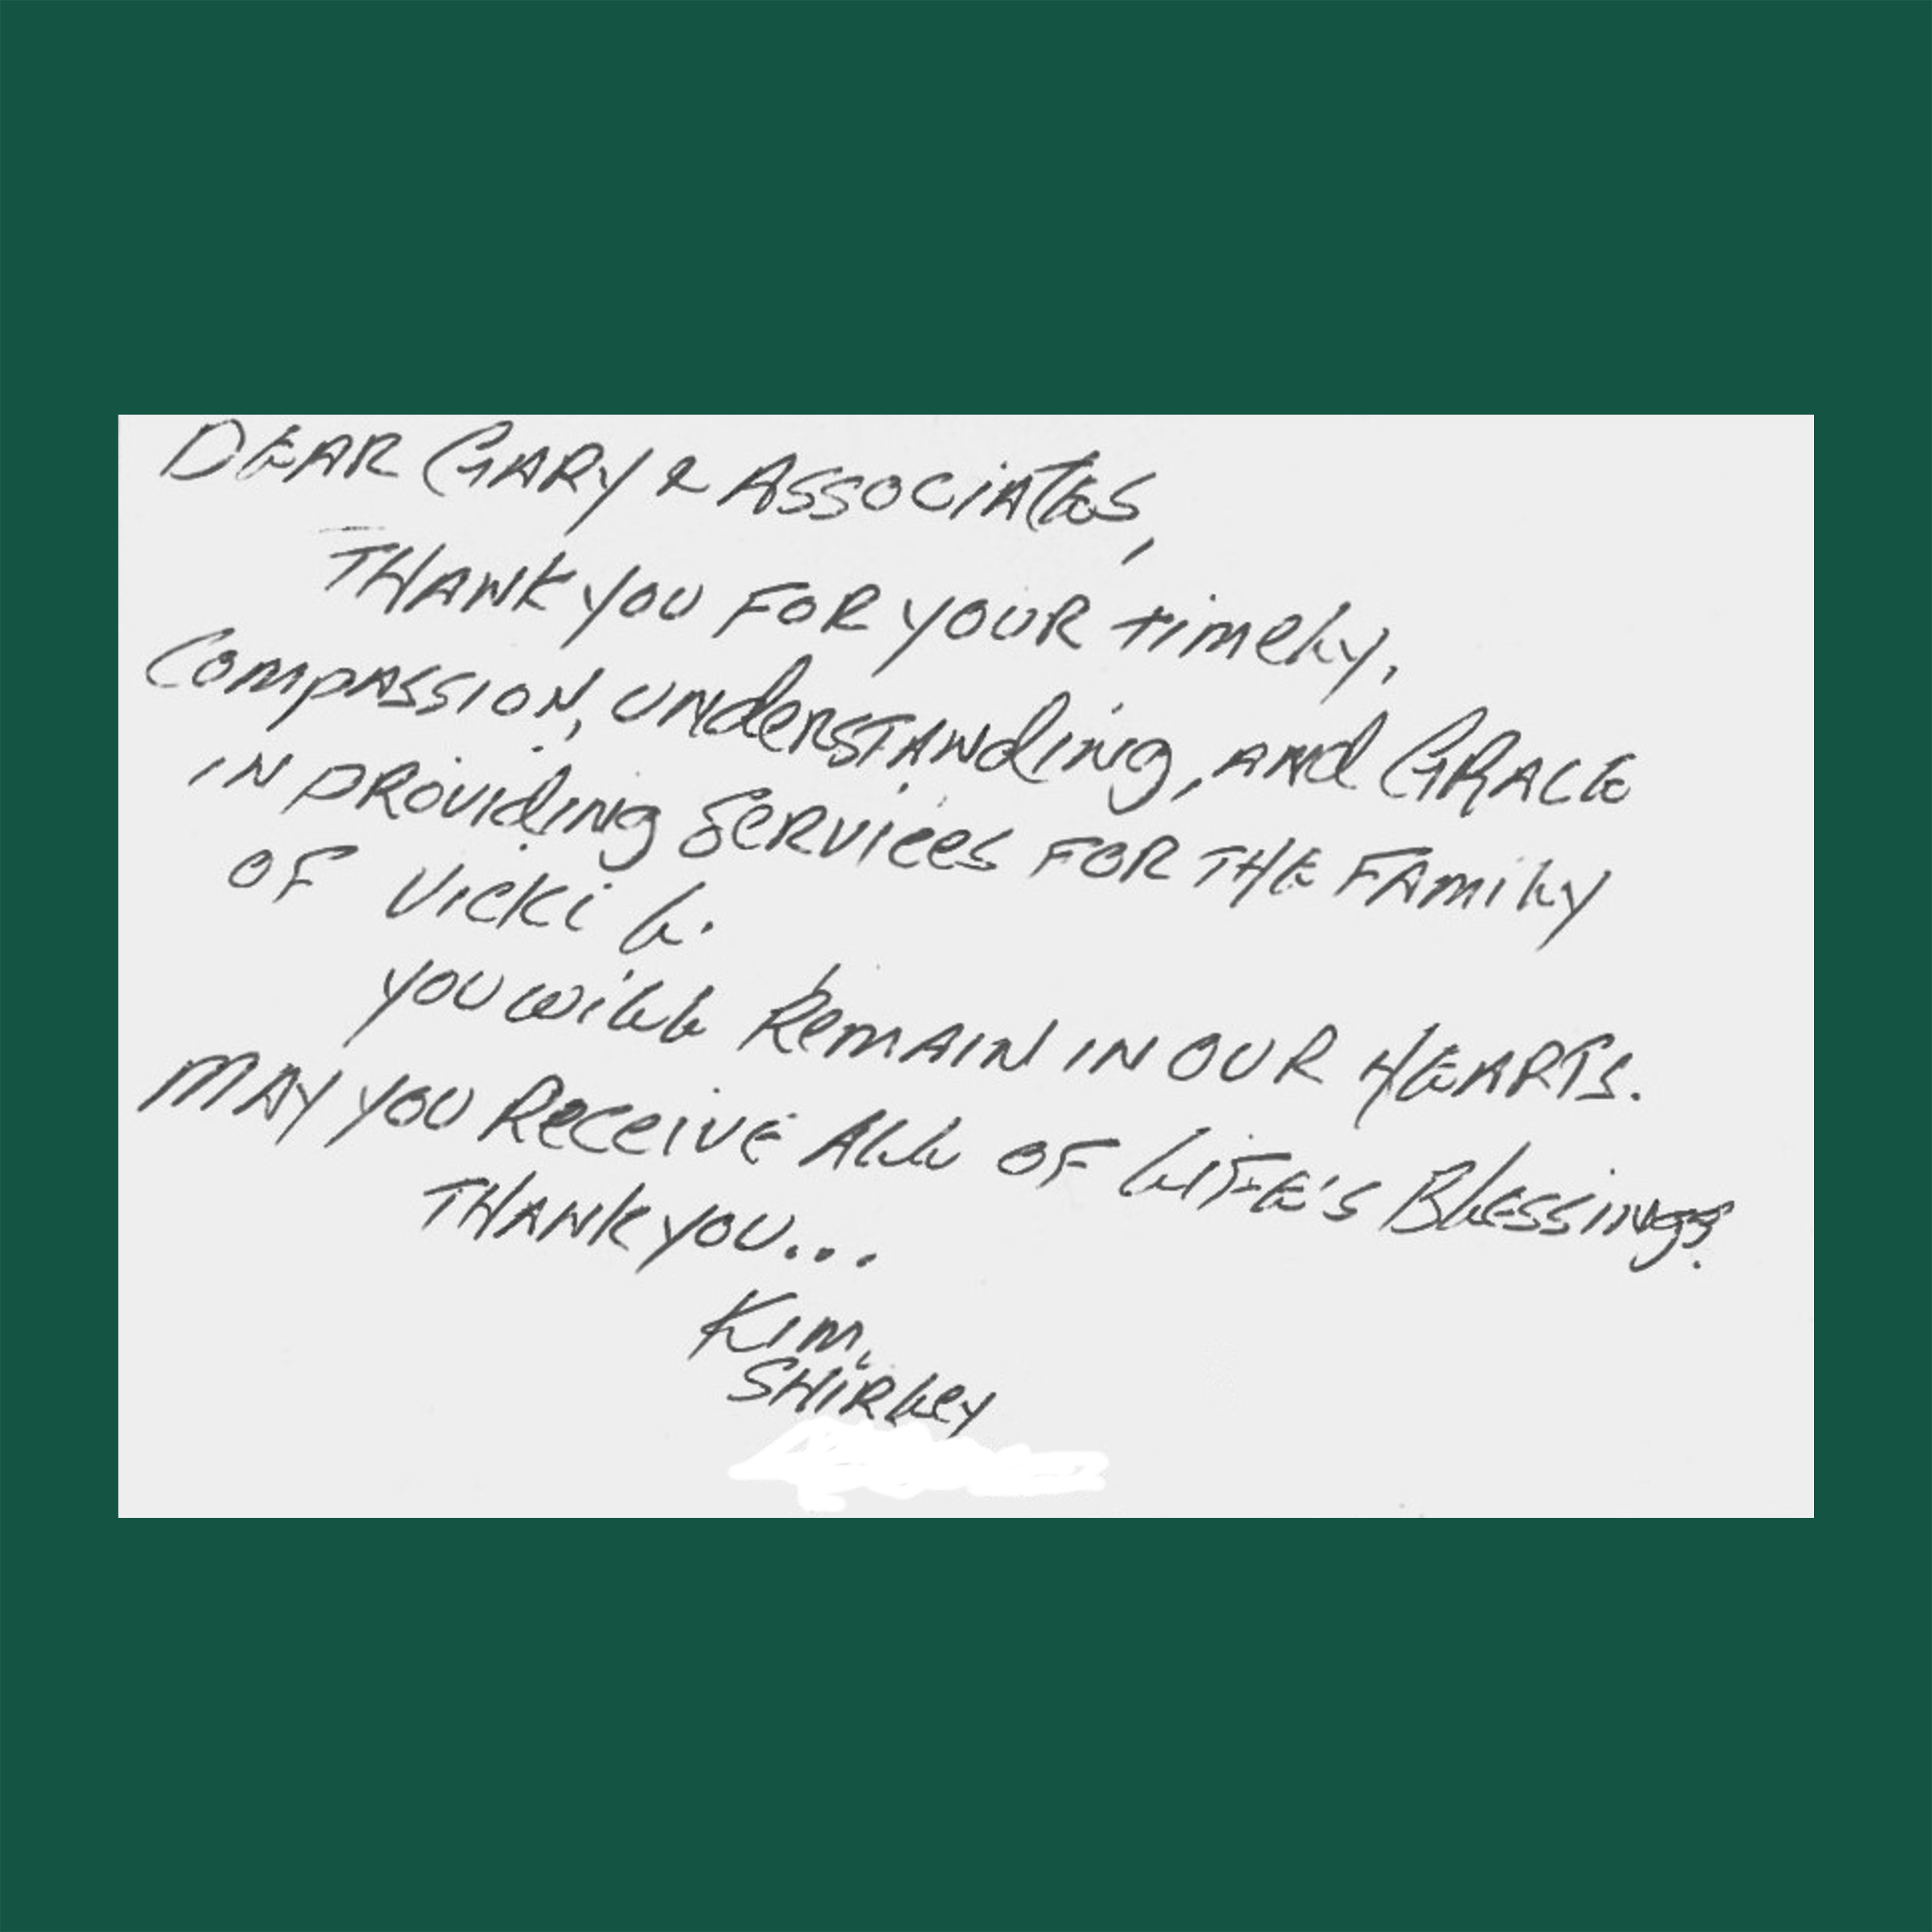 DEAR GARY & ASSOCIATES,
THANK YOU FOR YOUR timely,
COMPASSION, UNderSTANding, ANd GRACE
IN PROVIdING SERVICES FOR THE FAMILY
OF VICKI L.
YOU WILL REMAIN IN OUR HEARTS.
MAY YOU RECEIVE ALL OF LIFE'S BLESSINGS.
THANK YOU...
KIM,
SHIRLEY